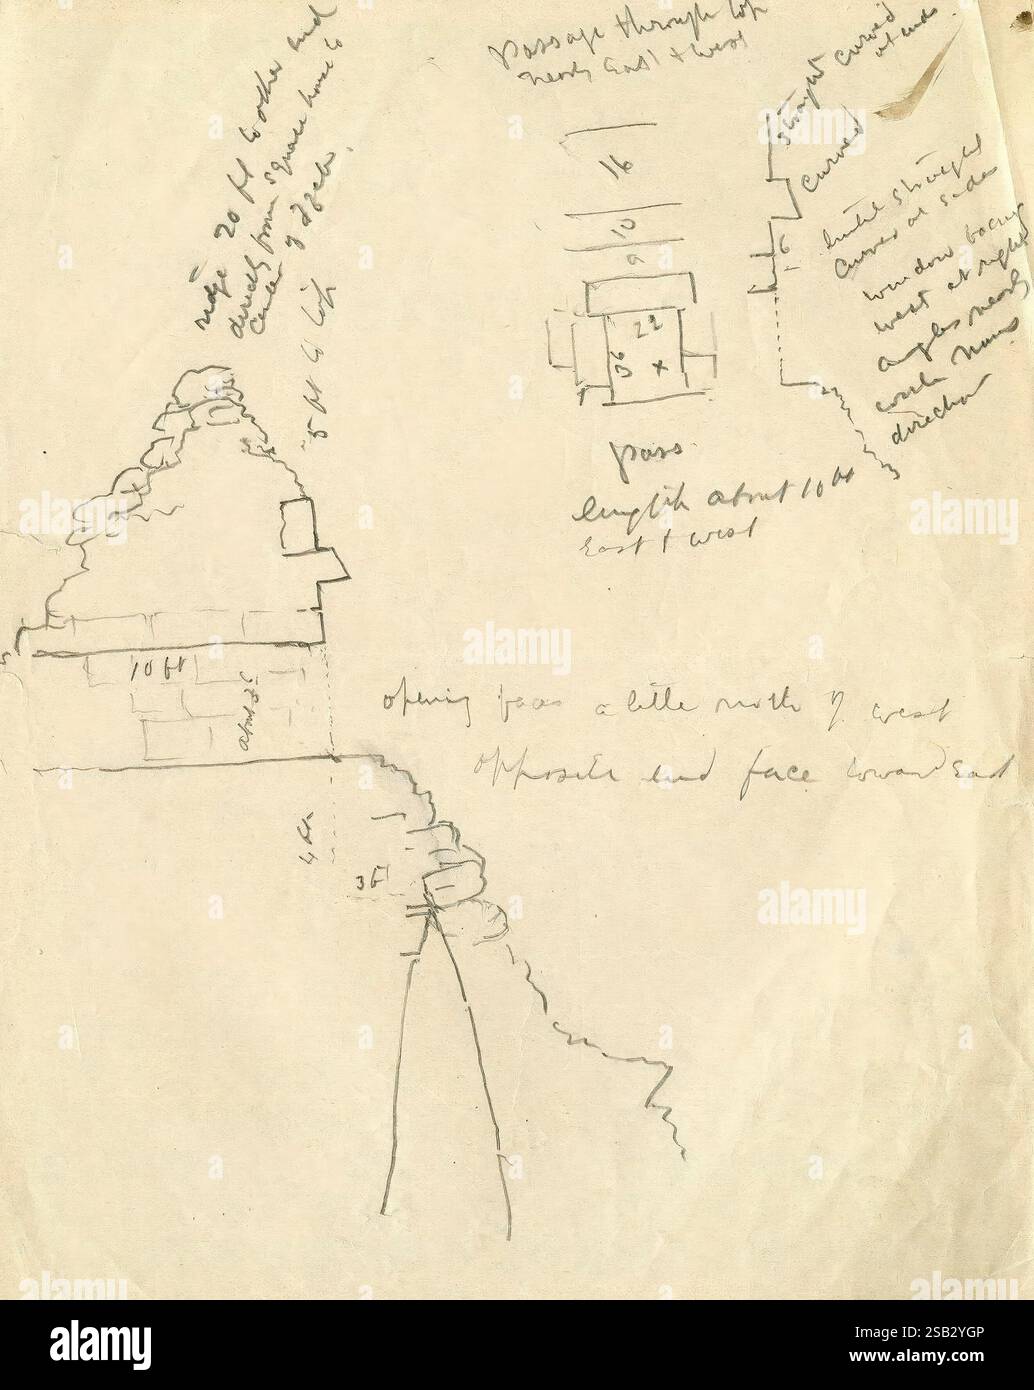 Passage through top
nearly East + west
straight curved
at ends
curved
ridge 20 ft to other end
directly from square house to
center of
5 ft to top
16
10
9
22
36 x
6
until straight
curved at sides
window facing
west at right
angles nearly
with
direction
pass
length about 10 ft
East + west
10 ft
about 36
opening faces a little north of west
opposite end face toward East
4 ft
3 ft
alamy
Image ID: 2SB2YGP
www.alamy.com